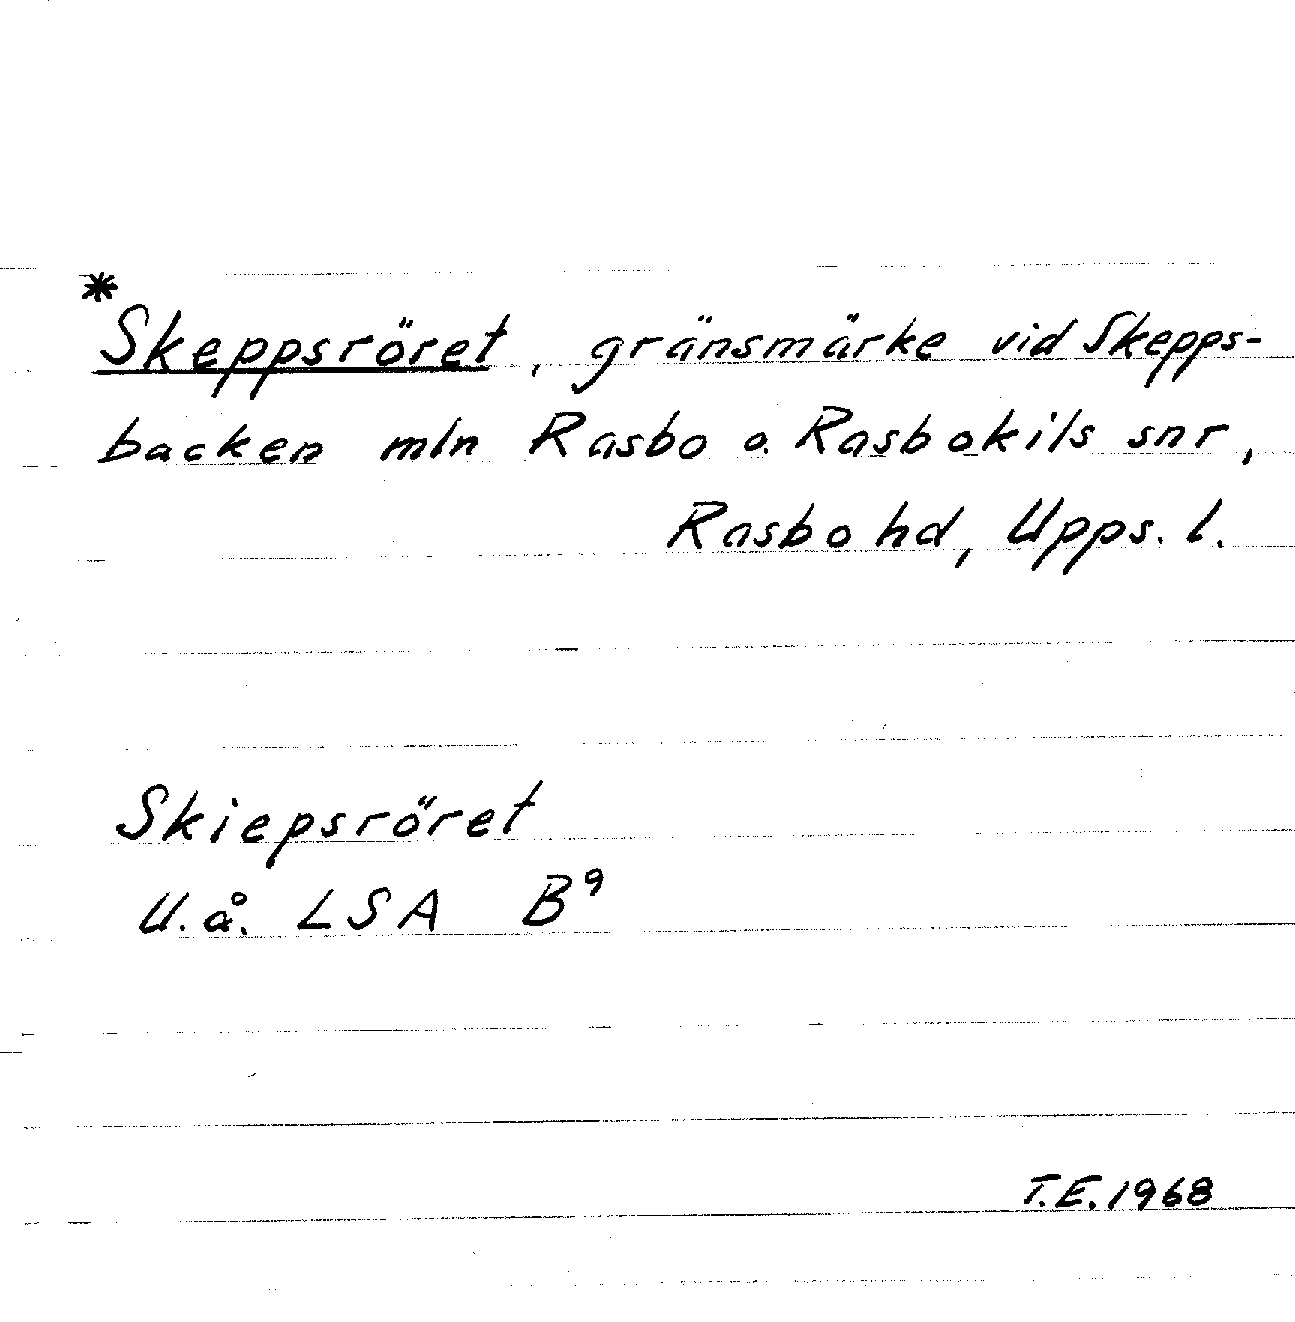 *Skeppsröret, gränsmärke vid Skepps-
backen mln Rasbo o. Rasbokils snr,
Rasbo hd, Upps. l.
Skiepsröret
U.å. LSA B⁹
T.E. 1968